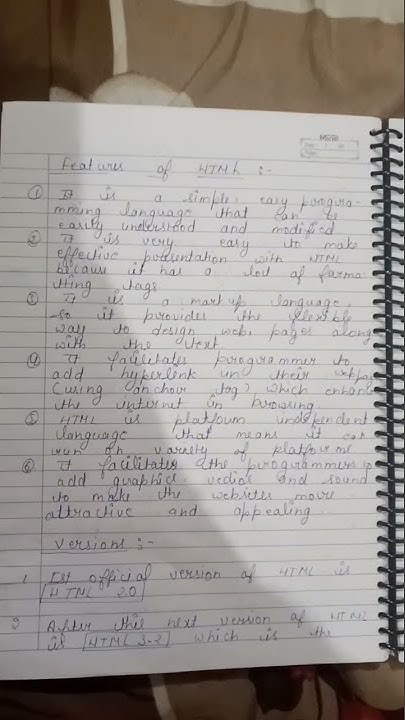 Features of HTML :-
① It is a simple, easy progra-
mming language that can be
easily understood and modified
② It is very easy to make
effective presentation with HTML
because it has a lot of forma
tting tags
③ It is a markup language,
so it provides the flexible
way to design web pages along
with the text
④ It facilitates programmer to
add hyperlink in their webpag
(using anchor tag) which enhance
the internet in browsing
⑤ HTML is platform independent
language that means it can
run on variety of platforms
⑥ It facilitates the programmers to
add graphics vedios and sound
to make the websites more
attractive and appealing
Versions :-
1 Ist official version of HTML is
[HTML 2.0]
2 After this next version of HTML
is [HTML 3-2] which is the